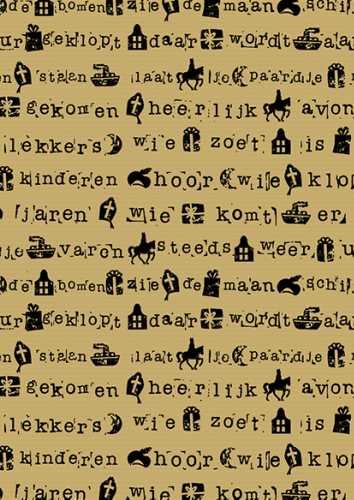 de bomen zie de maan schi
ur geklopt daar wordt aa
en staan laat je paardje
gekomen heerlijk avon
lekkers wie zoet is
kinderen hoor wie klo
jaren wie komt er
je varen steeds weer u
de bomen zie de maan schi
ur geklopt daar wordt aa
en staan laat je paardje
gekomen heerlijk avon
lekkers wie zoet is
kinderen hoor wie klo
jaren wie komt er